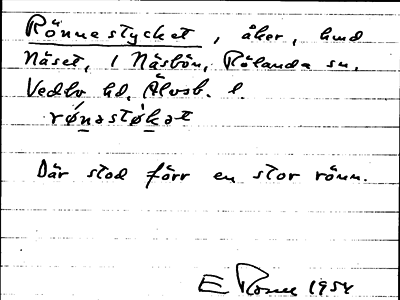 Rönnestycket, åker, hmd
Näset, i Näsbön, Rölanda sn.
Vedbo hd. Älvsb. l.
rǿnəstøkət
Där stod förr en stor rönn.
E 1954